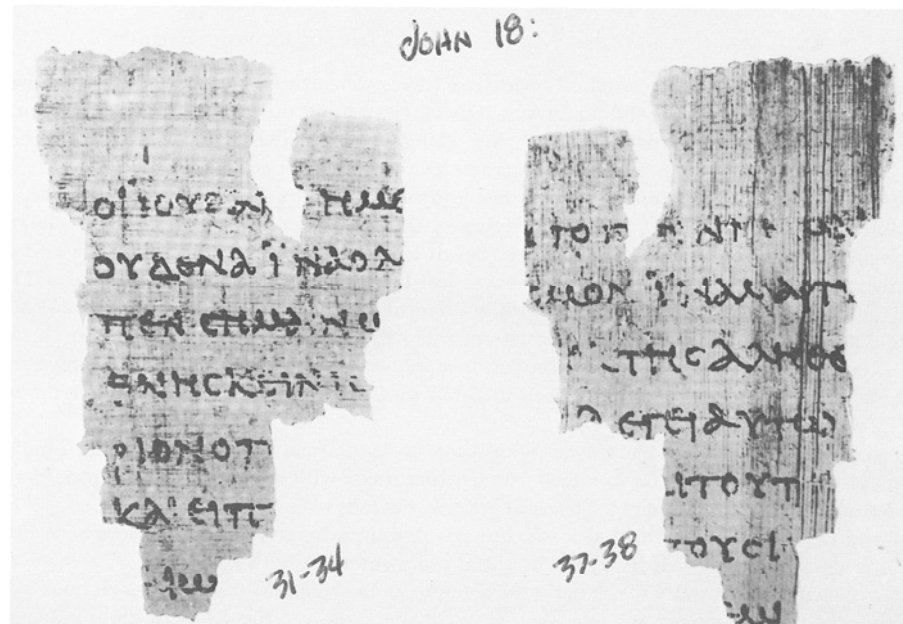 JOHN 18:
ΟΙ ΙΟΥΔΑΙ ΗΜΕ
ΟΥΔΕΝΑ ΪΝΑ Ο Λ
ΠΕΝ ϹΗΜΑΙΝΩ
ΘΝΗϹΚΕΙΝ ΙϹ
ΡΙΟΝ Ο Π
ΚΑΙ ΕΙΠ
31-34
ϹΜΟΝ ΪΝΑ ΜΑΡΤΥ
ΤΗϹ ΑΛΗΘΕ
ΛΕΓΕΙ ΑΥΤΩ
ΙΤΟΥΤ
ΤΟΥϹ Ι
37-38